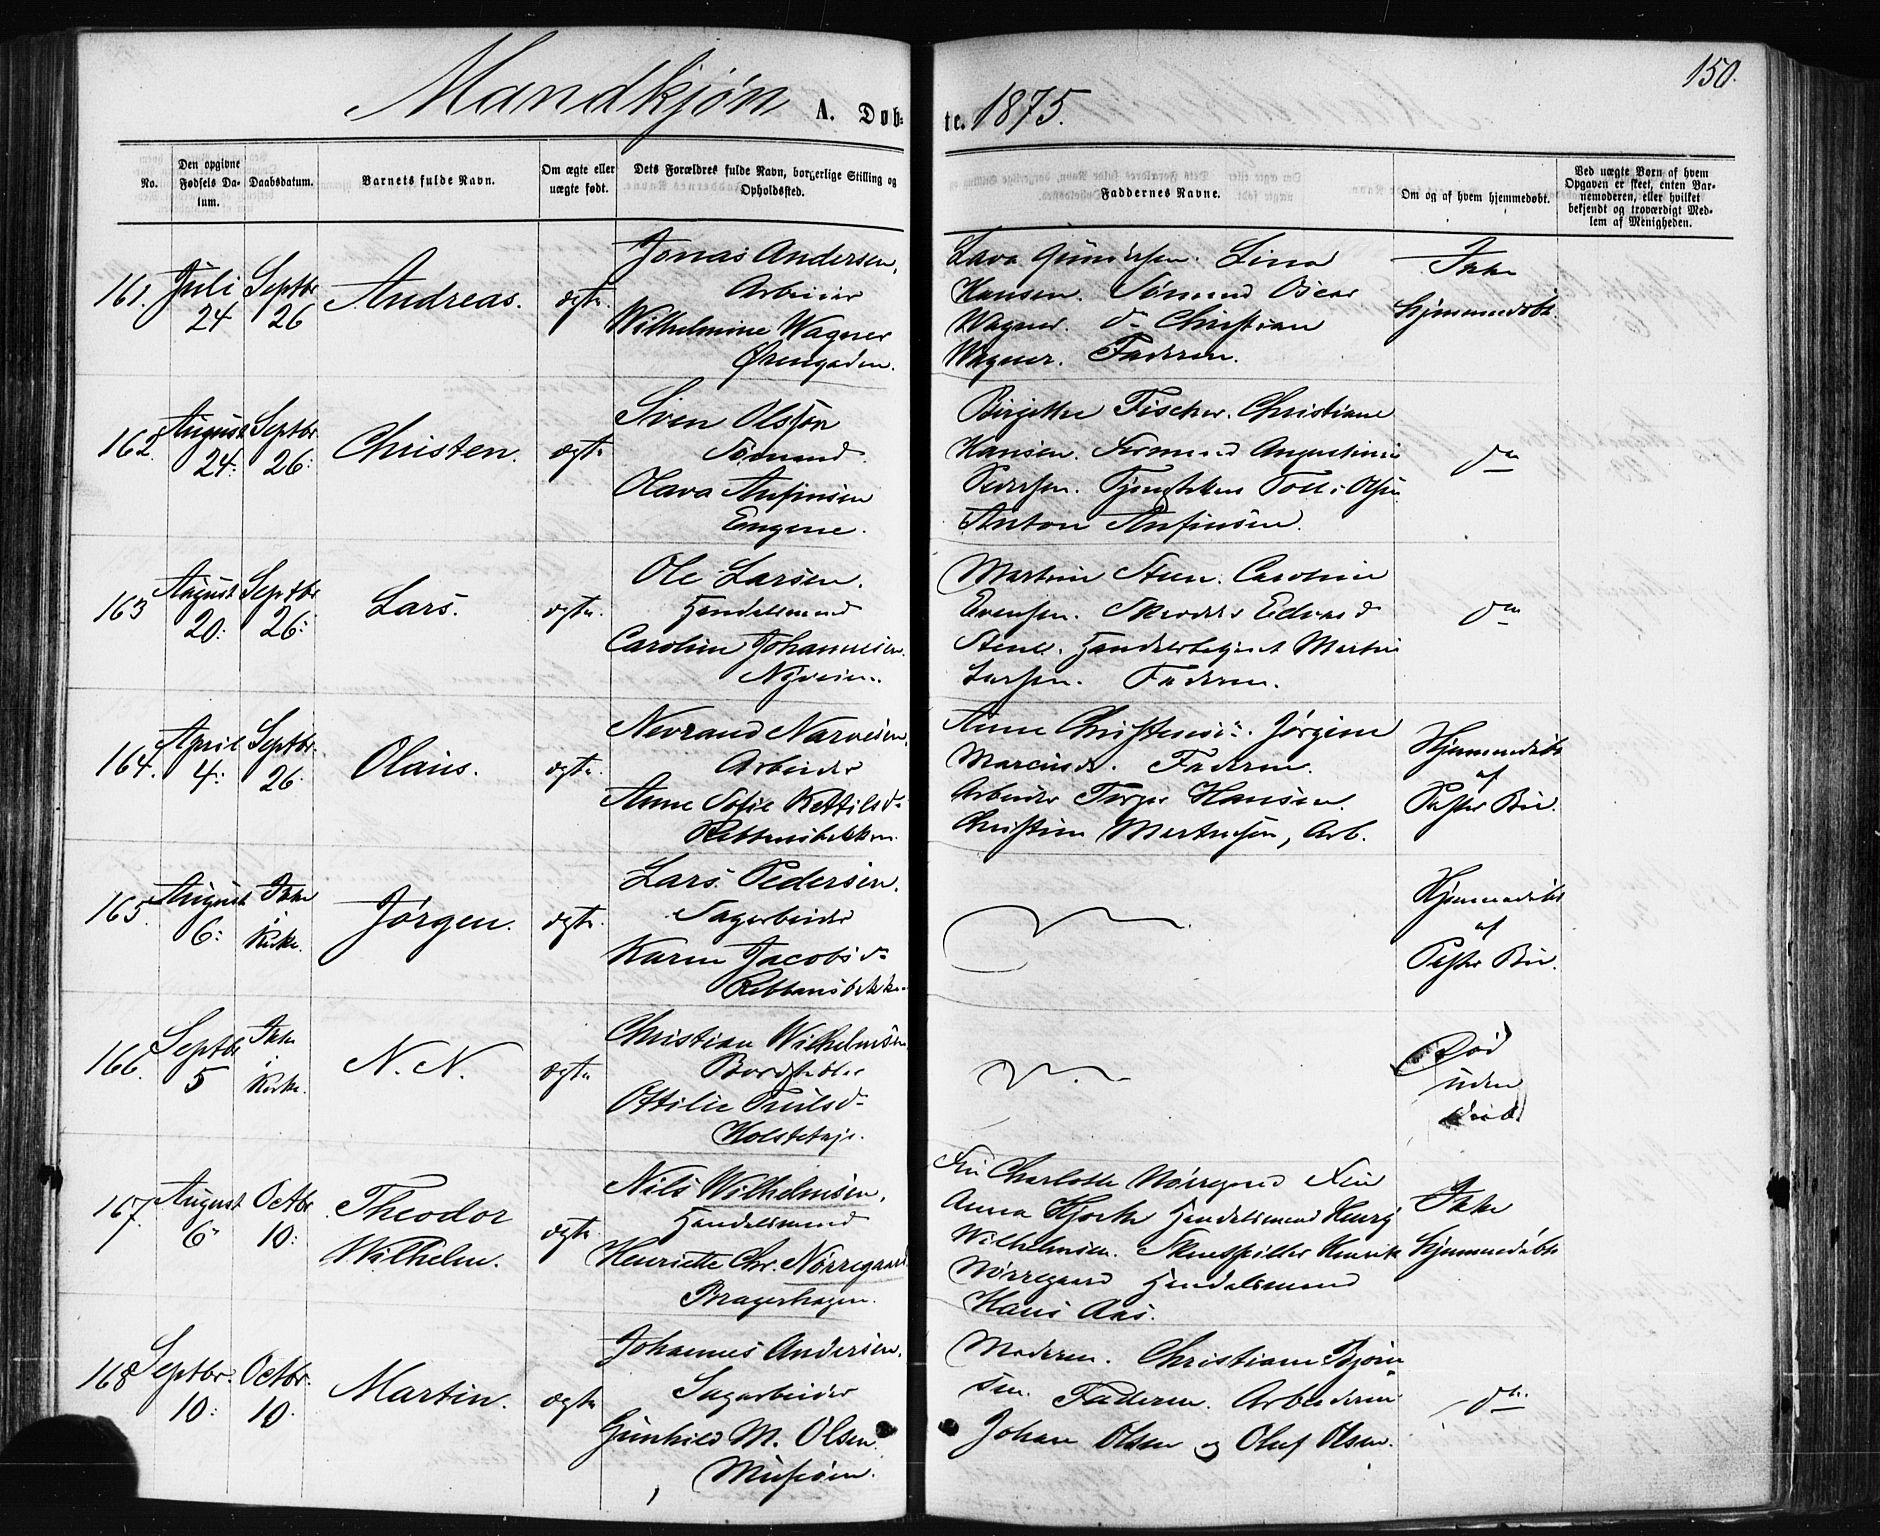 150.
Mandkjøn A. Døb-
te. 1875.
No.
Den opgivne Fødsels Da-
tum.
Daabsdatum.
Barnets fulde Navn.
Om ægte eller
uægte født.
Dets Forældres fulde Navn, borgerlige Stilling og
Opholdssted.
Faddernes Navne.
Om og af hvem hjemmedøbt.
Ved uægte Børn af hvem
Opgaven er skeet, enten Bar-
nemoderen, eller hvilket
bekjendt og troværdigt Med-
lem af Menigheden.
161.
Juli
24
Septbr
26
Andreas.
ægte.
Jonas Andersen,
Arbeider
Wilhelmine Wagner
Lava Lina
Hansen. Sømand Oscar
Wagner. do Christian
Wagner. Faderen.
Ikke
hjemmedøbt.
162.
August
24.
Septbr
26.
Christen.
ægte
Sven Olsson
Sømand.
Olava Anfinsen
Engene.
Birgitte Fischer. Christiane
Hansen. Augustinus
Pedersen. Olsen
Anton Anfinsen.
do
163
August
20.
Septbr
26.
Lars.
ægte.
Ole Larsen.
Handelsmand
Caroline Johannesen.
Nyveien.
Martine Steen. Caroline
Evensen. Skrædder Edvard
Steen. Handelsbetjent Martin
Larsen. Faderen.
do
164.
April
4.
Septbr.
26.
Olaus.
ægte.
Narvesen.
Arbeider
Anne Sofie Kettilsdr
Anne Jørgine
Faderen.
Arbeider Hansen.
Christian Martinsen, Arb.
Hjemmedøbt
af
Pastor Bie.
165.
August
6.
Ikke
i
Kirke.
Jørgen.
ægte.
Lars Pedersen.
Sagarbeider
Karen Jacobsdr
Hjemmedøbt
af
Pastor Bie.
166.
Septbr
5
Ikke
i
Kirke.
N. N.
ægte
Christian Wilhelmsen
Ottilie
Død
uden
Daab
167.
August
6.
Octbr
10.
Theodor
Wilhelm.
ægte.
Nils Wilhelmsen,
Handelsmand
Henriette Chr. Nørregaard
Bragerhagen.
Charlotte Nørregaard
Anna Handelsmand Henry
Wilhelmsen. Skuespiller Henrik
Nørregaard Handelsmand
Hans Aas.
Ikke
hjemmedøbt
168
Septbr.
10.
Octbr.
10.
Martin.
ægte
Johannes Andersen.
Sagarbeider
Gunhild M. Olsen
Moderen. Christiane Bjørn-
sen. Faderen. Arbeiderne
Johan Olsen og Oluf Olsen.
do